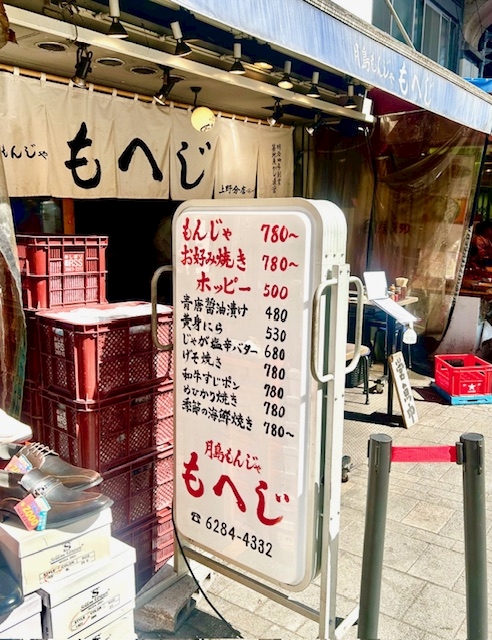 月島もんじゃ もへじ
もんじゃ もへじ
上野分店
もんじゃ 780〜
お好み焼き 780〜
ホッピー 500
青唐醤油漬け 480
黄身にら 530
じゃが塩辛バター 680
げそ焼き 780
和牛すじポン 780
めひかり焼き 780
季節の海鮮焼き 780〜
月島もんじゃ
もへじ
☎6284-4332